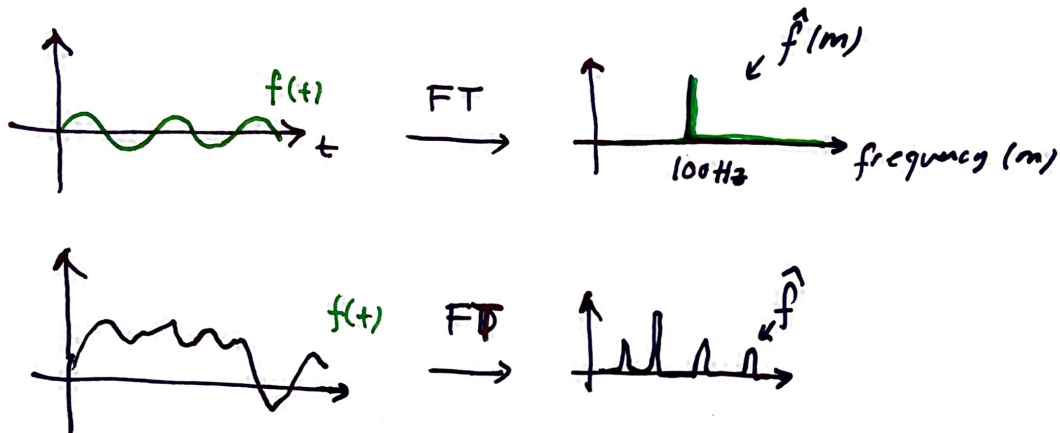 f(t)
t
FT
f̂(m)
100Hz
frequency (m)
f(t)
FT
f̂